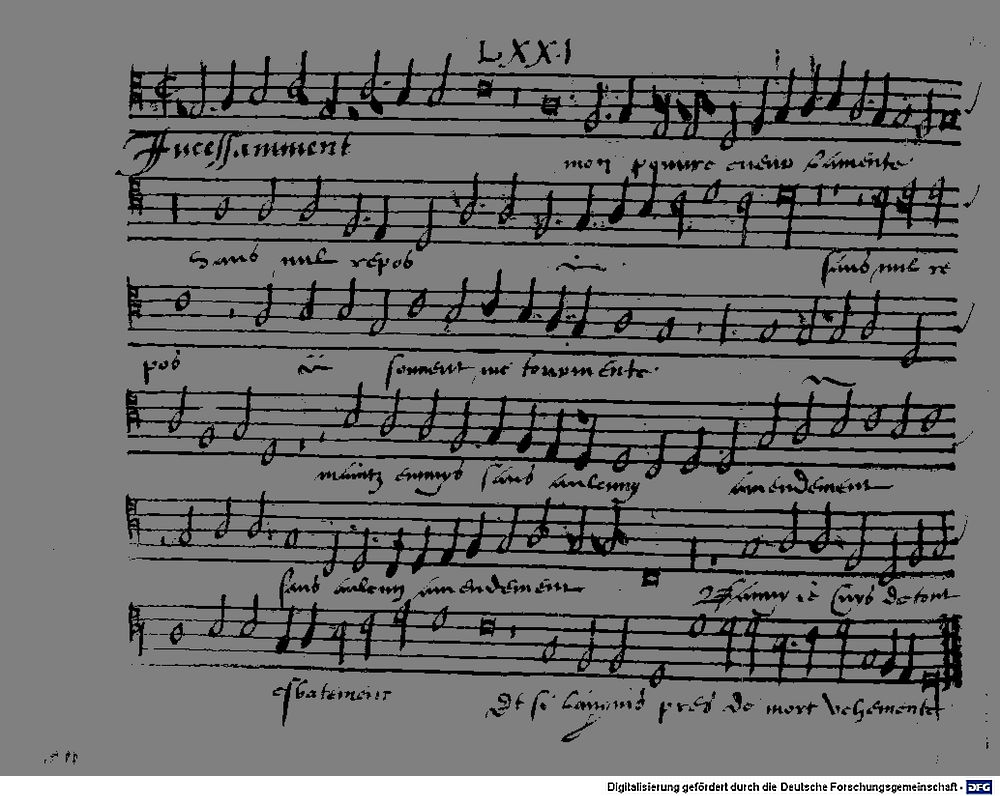 LXXI
Incessamment
mon povure cueur lamente
Sans nul repos ij sans nul re
pos ij souvent me tourmente
maintz ennuys sans aulcung amendement
sans aulcung amendement
esbatement Et si languis pres de mort vehemente
Digitalisierung gefördert durch die Deutsche Forschungsgemeinschaft - DFG